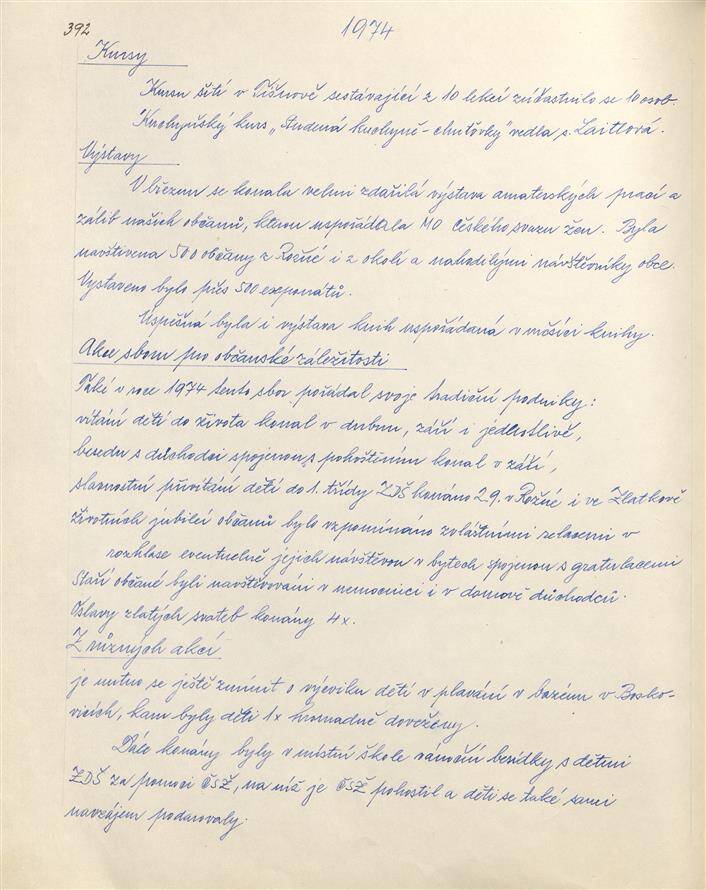 392
1974
Kursy
Kursu šití v Tišnově sestávající z 10 lekcí zúčastnilo se 10 osob.
Kuchyňský kurs „Studená kuchyně - chuťovky" vedla s. Laitlová.
Výstavy
V březnu se konala velmi zdařilá výstava amaterských prací a
zálib našich občanů, kterou uspořádala MO Českého svazu žen. Byla
navštívena 500 občany z Rožné i z okolí a nahodilými návštěvníky obce.
Vystaveno bylo přes 500 exponátů.
Úspěšná byla i výstava knih uspořádaná v měsíci knihy.
Akce sboru pro občanské záležitosti
Také v roce 1974 tento sbor pořádal svoje tradiční podniky:
vítání dětí do života konal v dubnu, září i jednotlivě,
besedu s důchodci spojenou s pohoštěním konal v září,
slavnostní přivítání dětí do 1. třídy ZDŠ konáno 2.9. v Rožné i ve Zlatkově
Životních jubileí občanů bylo vzpomínáno zvláštními relacemi v
rozhlase eventuelně jejich návštěvou v bytech spojenou s gratulacemi
Staří občané byli navštěvováni v nemocnici i v domově důchodců.
Oslavy zlatých svateb konány 4x.
Z různých akcí
je nutno se ještě zmínit o výcviku dětí v plavání v bazenu v Bosko-
vicích, kam byly děti 1x hromadně dovezeny.
Dále konány byly v místní škole vánoční besídky s dětmi
ZDŠ za pomoci ČSŽ, na níž je ČSŽ pohostil a děti se také sami
navzájem podarovaly.